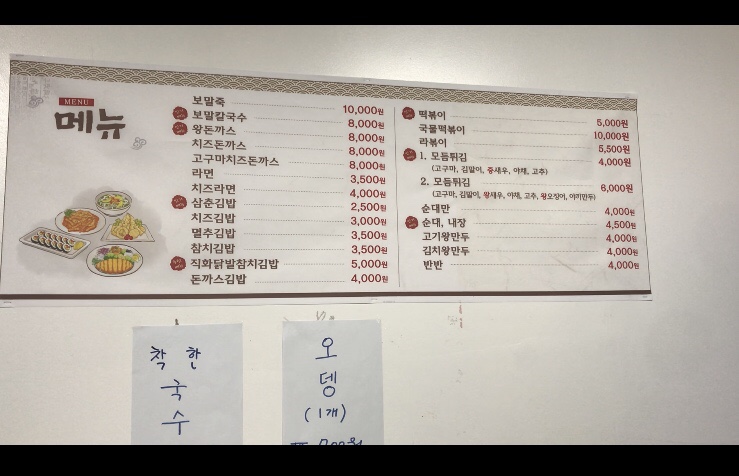 MENU
메뉴
보말죽 10,000원
보말칼국수 8,000원
왕돈까스 8,000원
치즈돈까스 8,000원
고구마치즈돈까스 8,000원
라면 3,500원
치즈라면 4,000원
삼춘김밥 2,500원
치즈김밥 3,000원
멸추김밥 3,500원
참치김밥 3,500원
직화닭발참치김밥 5,000원
돈까스김밥 4,000원
떡볶이 5,000원
국물떡볶이 10,000원
라볶이 5,500원
1. 모듬튀김 4,000원
(고구마, 김말이, 중새우, 야채, 고추)
2. 모듬튀김 8,000원
(고구마, 김말이, 왕새우, 야채, 고추, 왕오징어, 야끼만두)
순대만 4,000원
순대, 내장 4,500원
고기왕만두 4,000원
김치왕만두 4,000원
반반 4,000원
착한
국
수
오
뎅
(1개)